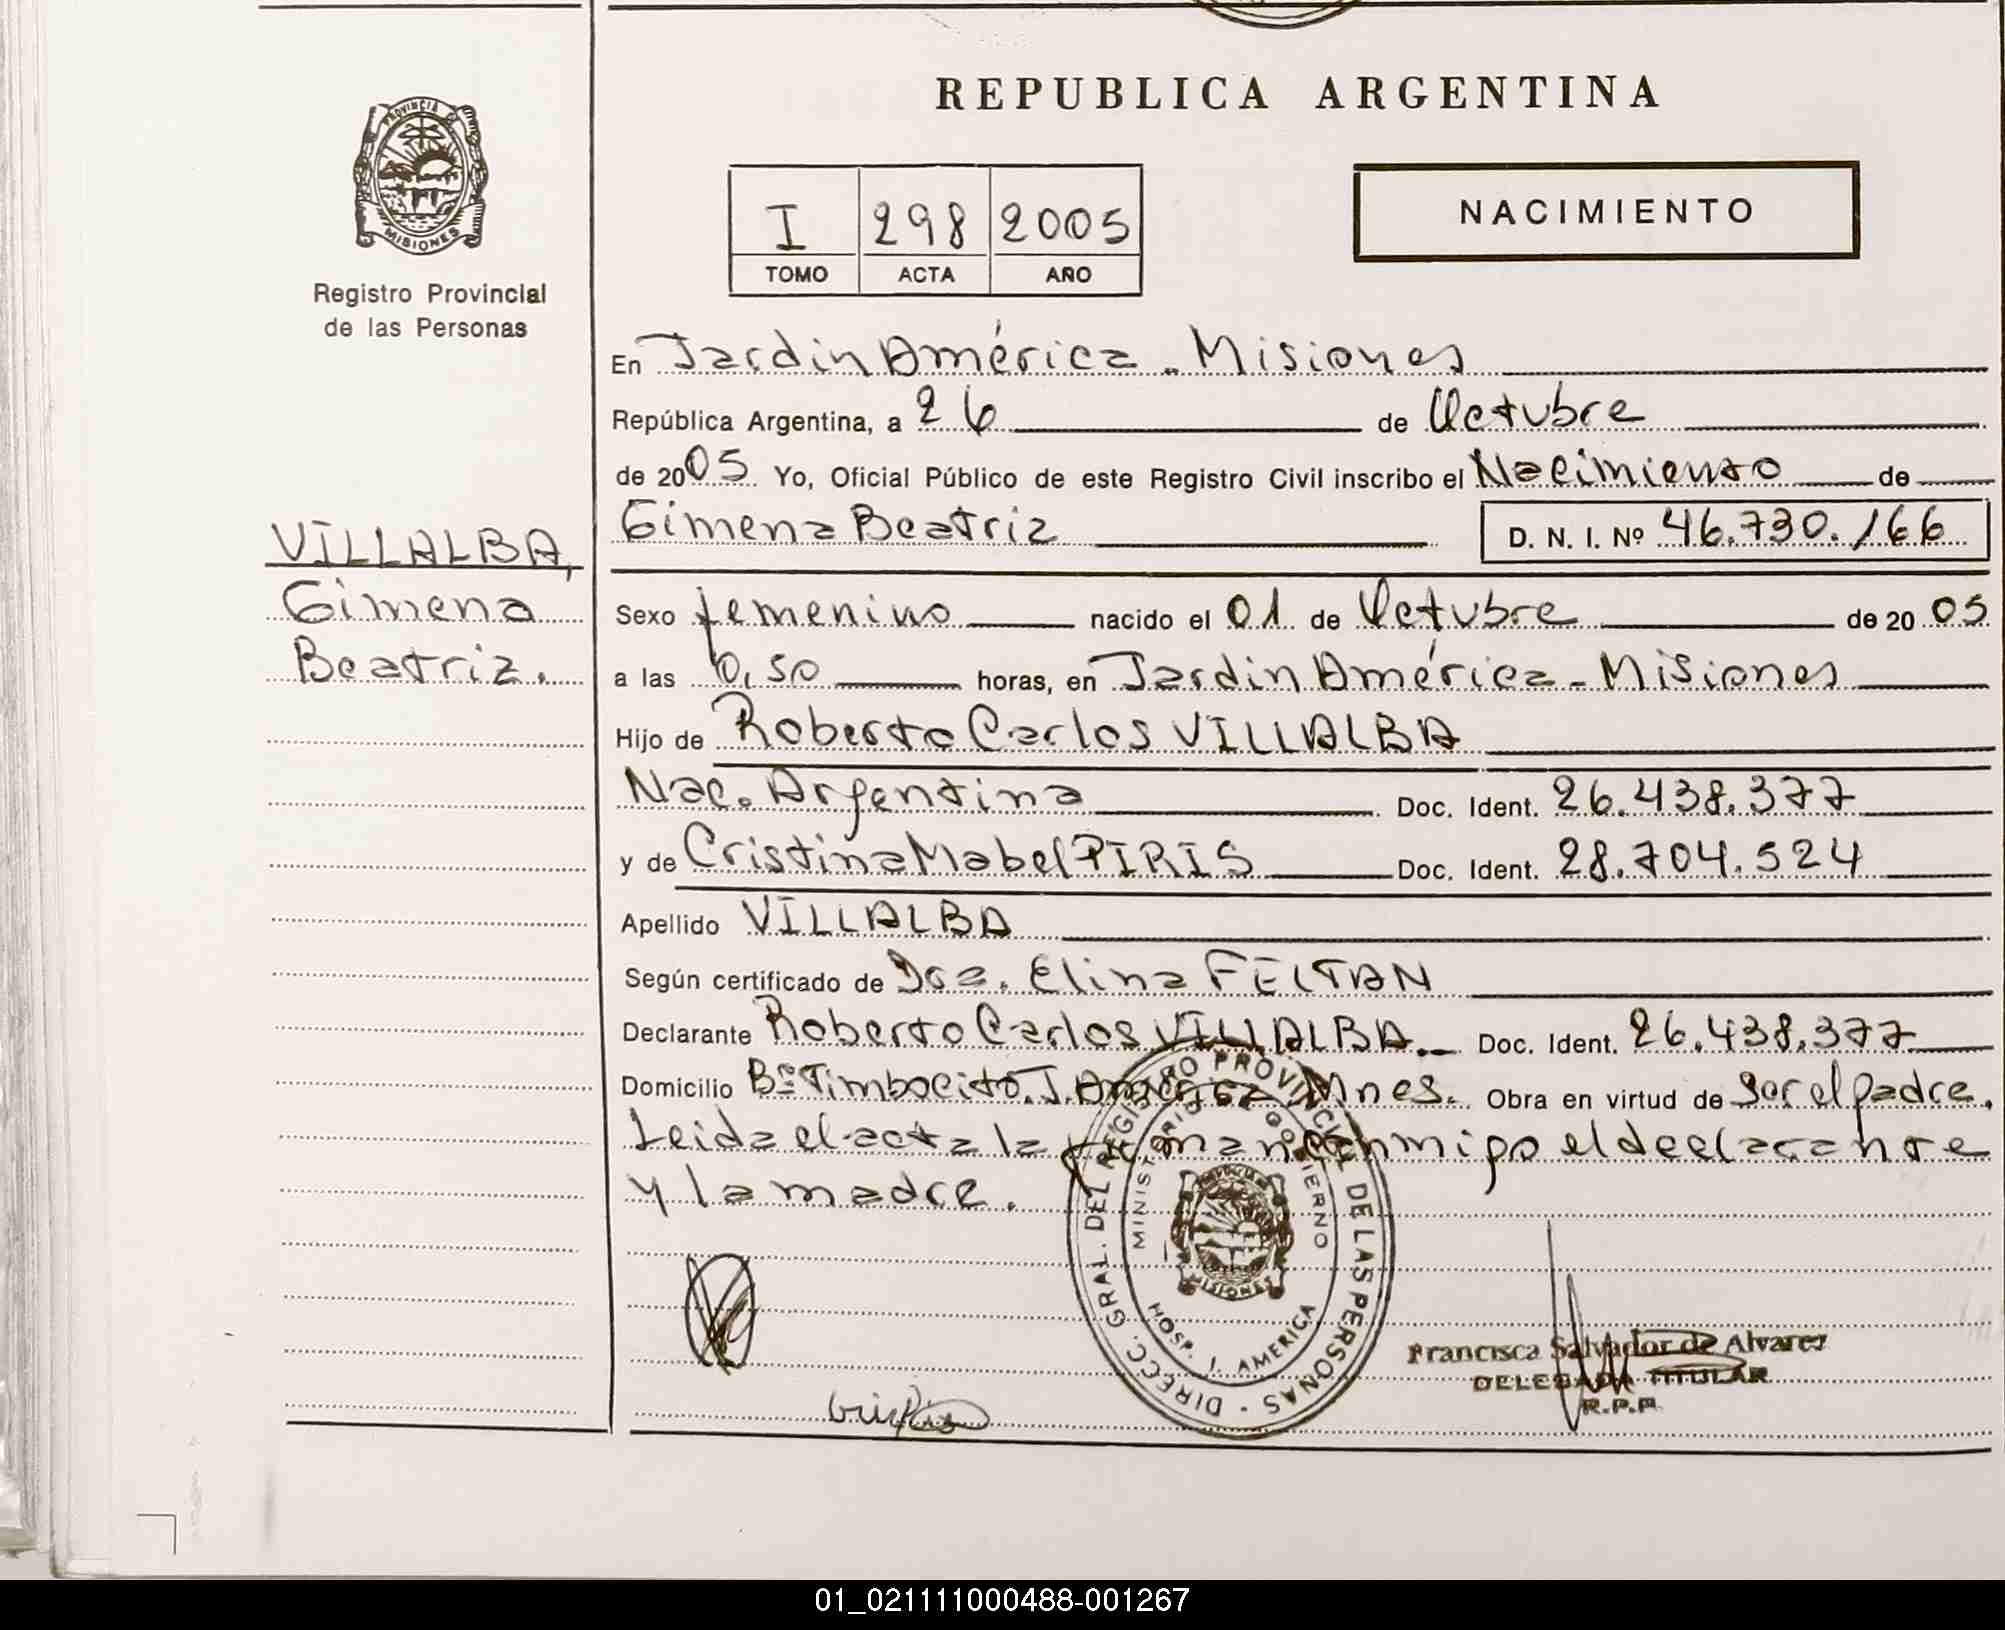 REPUBLICA ARGENTINA
PROVINCIA DE
MISIONES
Registro Provincial
de las Personas
I 298 2005
TOMO ACTA AÑO
NACIMIENTO
En Jardin América - Misiones
República Argentina, a 26 de Octubre
de 2005 Yo, Oficial Público de este Registro Civil inscribo el Nacimiento de
VILLALBA,
Gimena
Beatriz.
Gimena Beatriz D. N. I. Nº 46.730.166
Sexo femenino nacido el 01 de Octubre de 2005
a las 0,50 horas, en Jardin América - Misiones
Hijo de Roberto Carlos VILLALBA
Nac. Argentina Doc. Ident. 26.438.377
y de Cristina Mabel PIRIS Doc. Ident. 28.704.524
Apellido VILLALBA
Según certificado de Dra. Elina FELTAN
Declarante Roberto Carlos VILLALBA. Doc. Ident. 26.438.377
Domicilio Bº Timbocito. J. América Mnes. Obra en virtud de Ser el padre.
Leida el acta la firman conmigo el declarante
y la madre.
DIRECC. GRAL. DEL REGISTRO PROVINCIAL DE LAS PERSONAS
MINISTERIO DE GOBIERNO
HOSP. J. AMERICA
MISIONES
Francisca Salvador de Alvarez
DELEGADA TITULAR
R.P.P.
01_021111000488-001267